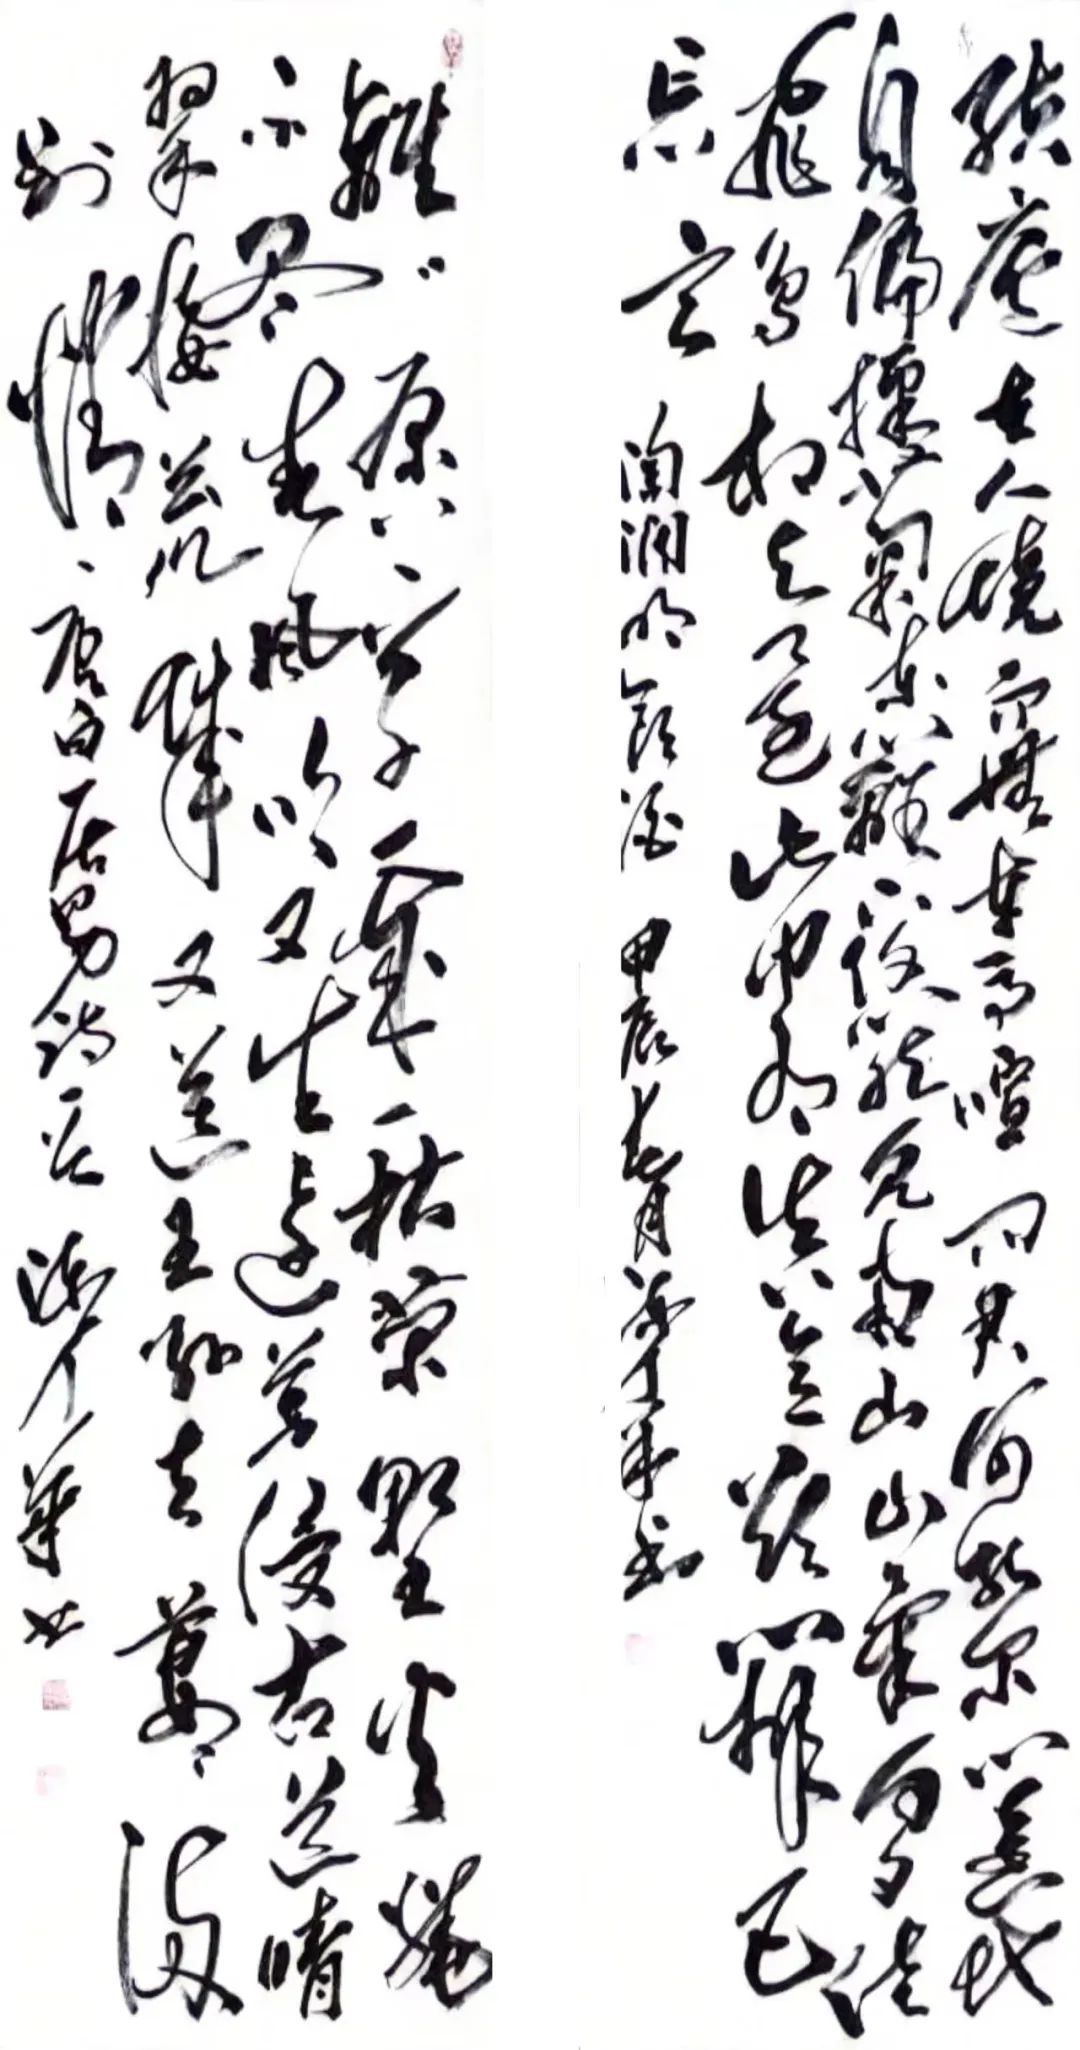 結廬在人境而無車馬喧問君何能爾心遠地
自偏採菊東籬下悠然見南山山氣日夕佳
飛鳥相與還此中有真意欲辨已
忘言 陶淵明飲酒 甲辰春月 才華書
離離原上草一歲一枯榮野火燒
不尽春風吹又生遠芳侵古道晴
翠接荒城又送王孫去萋萋滿
別情 唐白居易詩一首 陳才華書